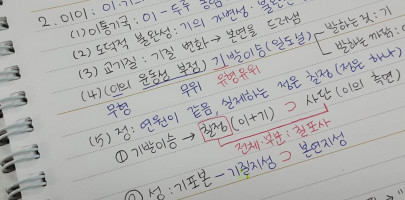 2. 이이 : 이·기
(1) 이통기국 : 이 - 두루
(2) 도덕적 불완성 : 기의 자연성 :
(3) 교기질 : 기질 변화 → 본연을 드러냄
(4) (이의 운동성 부정) 기발이승(일도설) 발하는 것 : 기
발하는 까닭 :
무형 무위 유형유위
(5) 정 : 연원이 같음, 실재하는 정은 칠정 (정은 하나)
① 기발이승 → 칠정 (이+기) ⊃ 사단 (이의 측면)
전체·부분 : 칠포사
② 성 : 기포본 - 기질지성 ⊃ 본연지성